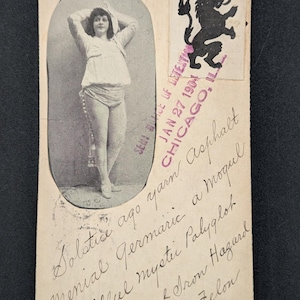 OF
JAN 27 1904
CHICAGO, ILL.
Solstice ago yarn Asphalt
Menial Germanic a Mogul
Mystic Polyglot
Iron Hazard
Felon